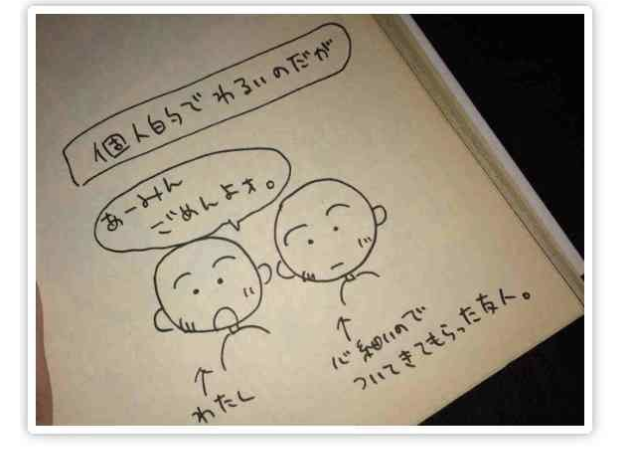 個人的でわるいのだが
あーみん
ごめんよォ。
↑
わたし
↑
心細いので
ついてきてもらった友人。